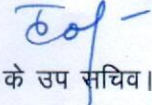 के उप सचिव।